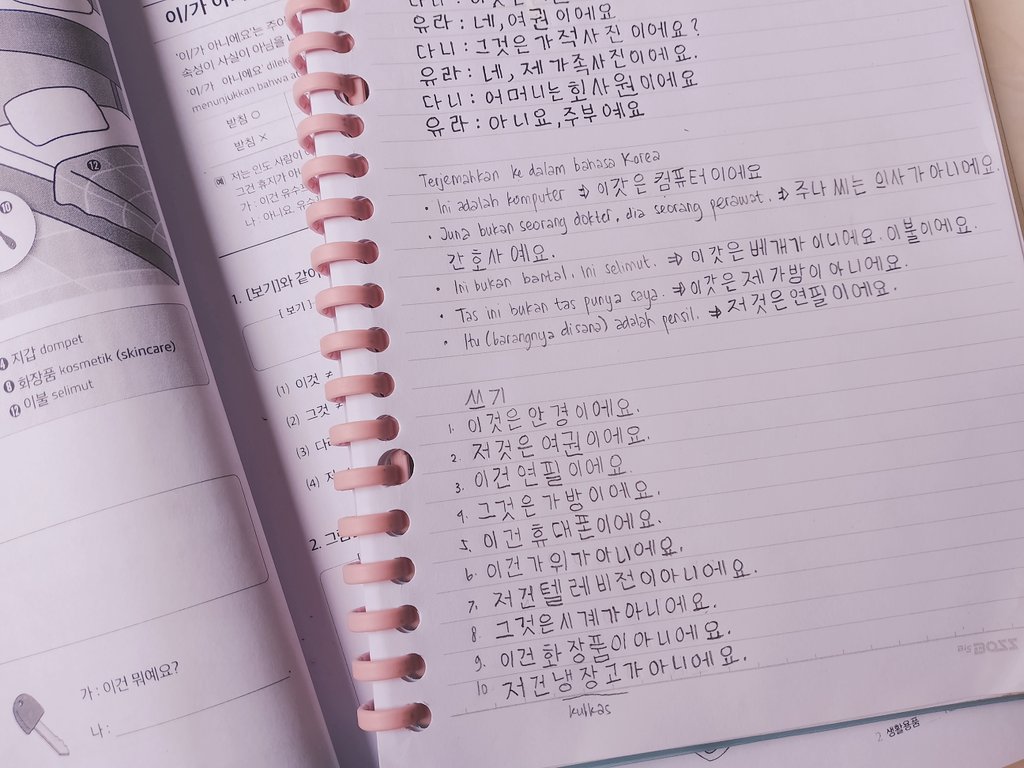 이/가 아니
'이/가 아니에요'는 주어
속성이 사실이 아님을
'이/가 아니에요' dilek
menunjukkan bahwa
받침 O
받침 X
저는 인도 사람이
그건 휴지가 아
가 : 이건 유
나 : 아니요. 유
1. [보기]와 같이
[보기]
(1) 이것 ≠
(2) 그것 ≠
(3) 다
(4) 저
2. 그림
12
10
지갑 dompet
화장품 kosmetik (skincare)
⑫ 이불 selimut
가 : 이건 뭐예요?
나 :
유라 : 네, 여권이에요
다니 : 그것은 가적사진이에요?
유라 : 네, 제 가족사진이에요.
다니 : 어머니는 회사원이에요
유라 : 아니요, 주부예요
Terjemahkan ke dalam bahasa Korea
• Ini adalah komputer ⇒ 이갓은 컴퓨터이에요
• Juna bukan seorang dokter, dia seorang perawat. ⇒ 주나 씨는 의사가 아니에요.
간호사예요.
• Ini bukan bantal. Ini selimut. ⇒ 이갓은 베개가 이니에요. 이불이에요.
• Tas ini bukan tas punya saya. ⇒ 이갓은 제 가방이 아니에요.
• Itu (barangnya disana) adalah pensil. ⇒ 저것은 연필이에요.
쓰기
1. 이것은 안경이에요.
2. 저것은 여권이에요.
3. 이건 연필이에요.
4. 그것은 가방이에요.
5. 이건 휴대폰이에요.
6. 이건 가위가 아니에요.
7. 저건 텔레비전이 아니에요.
8. 그것은 시계가 아니에요.
9. 이건 화장품이 아니에요.
10. 저건 냉장고가 아니에요.
kulkas
2 생활용품